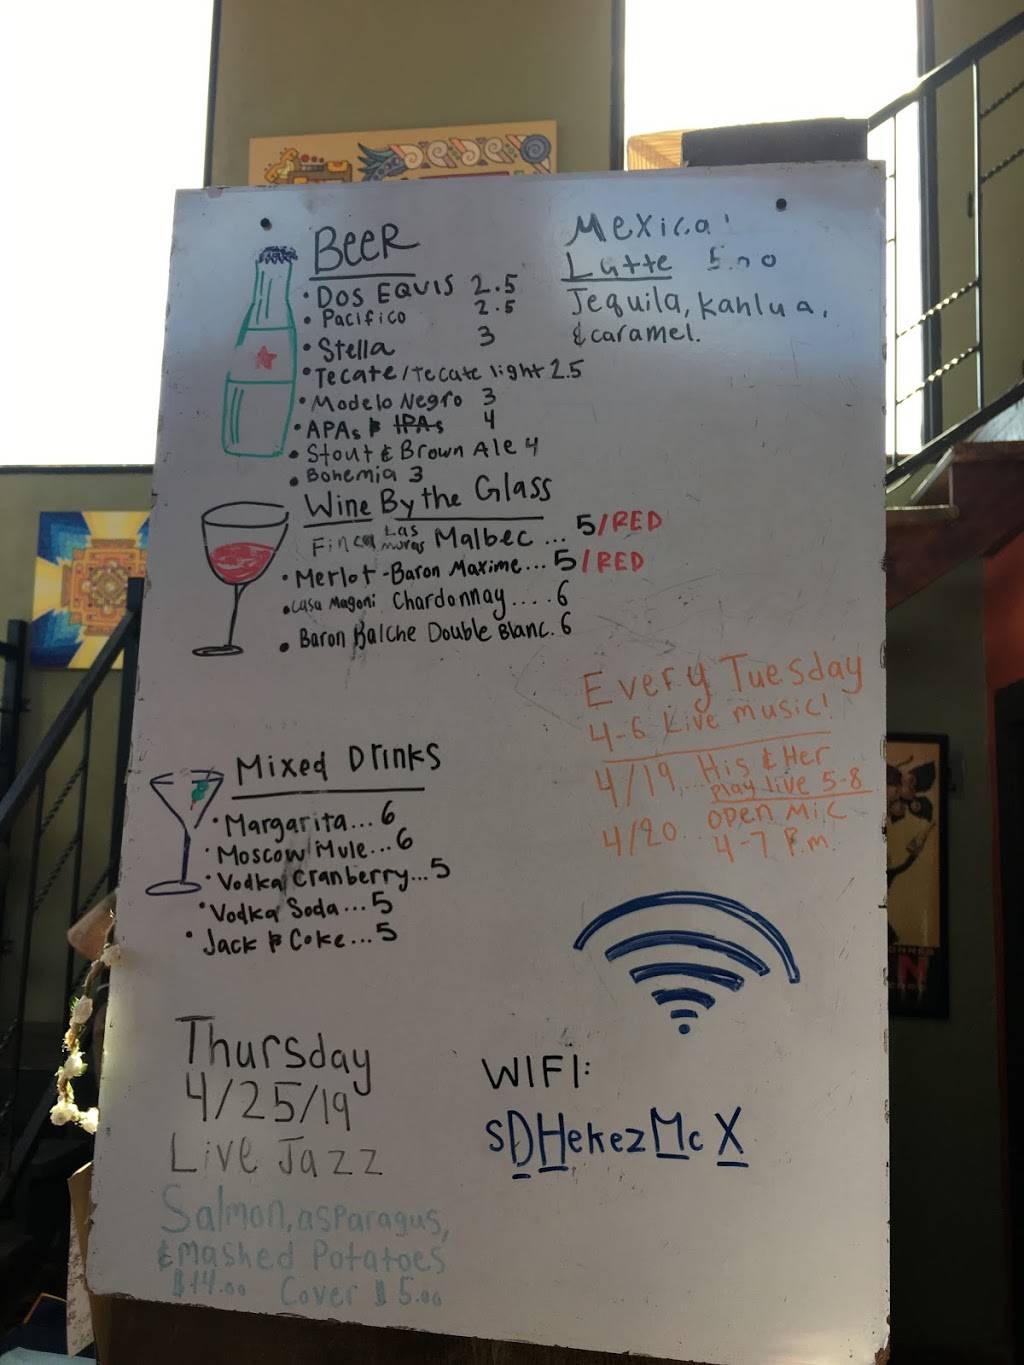 Beer
• Dos Equis 2.5
• Pacifico 2.5
• Stella 3
• Tecate/Tecate light 2.5
• Modelo Negro 3
• APAs & IPAs 4
• Stout & Brown Ale 4
• Bohemia 3
Mexica'
Latte 5.00
Tequila, Kahlua,
& caramel.
Wine By the Glass
Finca Las Moras Malbec ... 5/RED
• Merlot - Baron Maxime... 5/RED
• Casa Magoni Chardonnay.... 6
• Baron Balche Double Blanc. 6
Every Tuesday
4-6 Live music!
4/19... His & Her
Play live 5-8
4/20... Open Mic
4-7 P.m.
Mixed Drinks
• Margarita... 6
• Moscow Mule... 6
• Vodka Cranberry... 5
• Vodka Soda... 5
• Jack & Coke... 5
Thursday
4/25/19
Live Jazz
Salmon, asparagus,
& mashed Potatoes
$14.00 Cover $5.00
WIFI:
sDHekezMcX